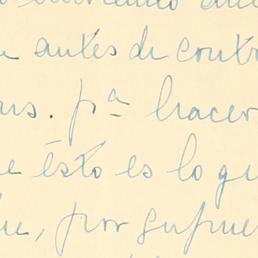 antes de contr
us. pª hacer
e ésto es lo qu
ue, por supue